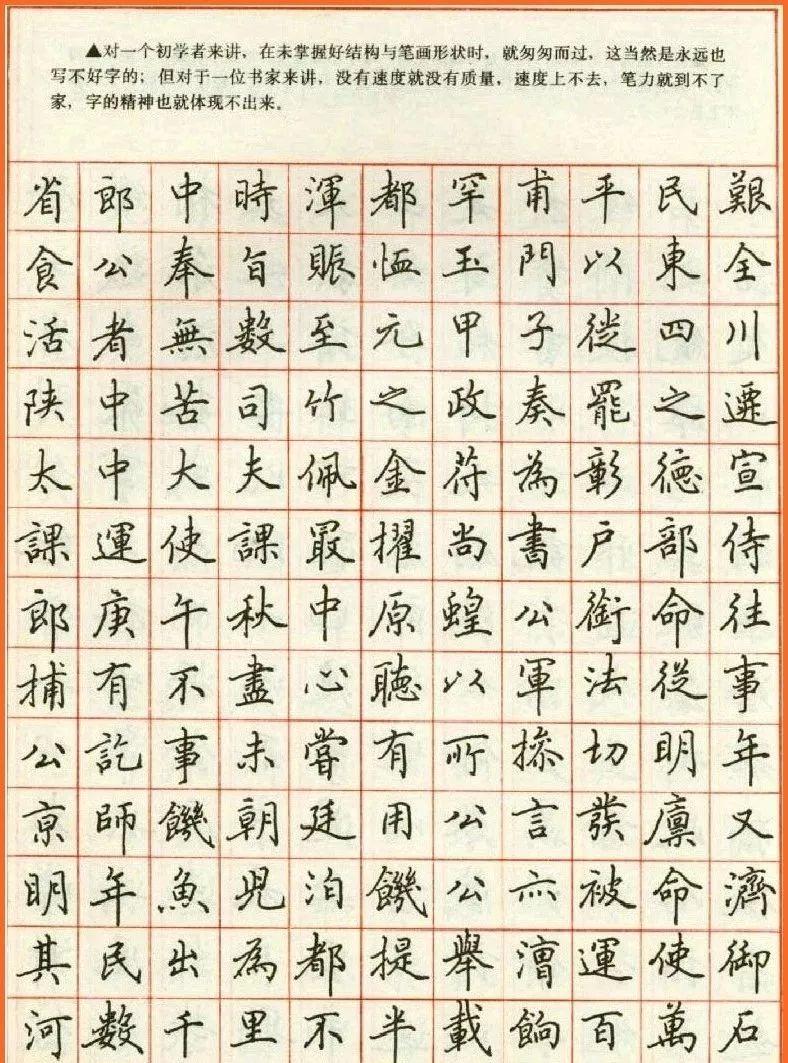 ▲对一个初学者来讲，在未掌握好结构与笔画形状时，就匆匆而过，这当然是永远也
写不好字的；但对于一位书家来讲，没有速度就没有质量，速度上不去，笔力就到不了
家，字的精神也就体现不出来。
省郎中時渾都罕甫平民艱
食公奉旨賑恤玉門以東全
活者無數至元甲子從四川
陝中苦司竹之政奏罷之遷
太中大夫佩金符為彰德宣
課運使課最擢尚書戶部侍
郎庚午秋中原蝗公銜命往
捕有不盡心聽以軍法從事
公訖事未嘗有所搽切明年
京師饑朝廷用公言發廩又
明年魚兒泊饑公亦被命濟
其民出為都提舉漕運使御
河數千里不半載餉百萬石